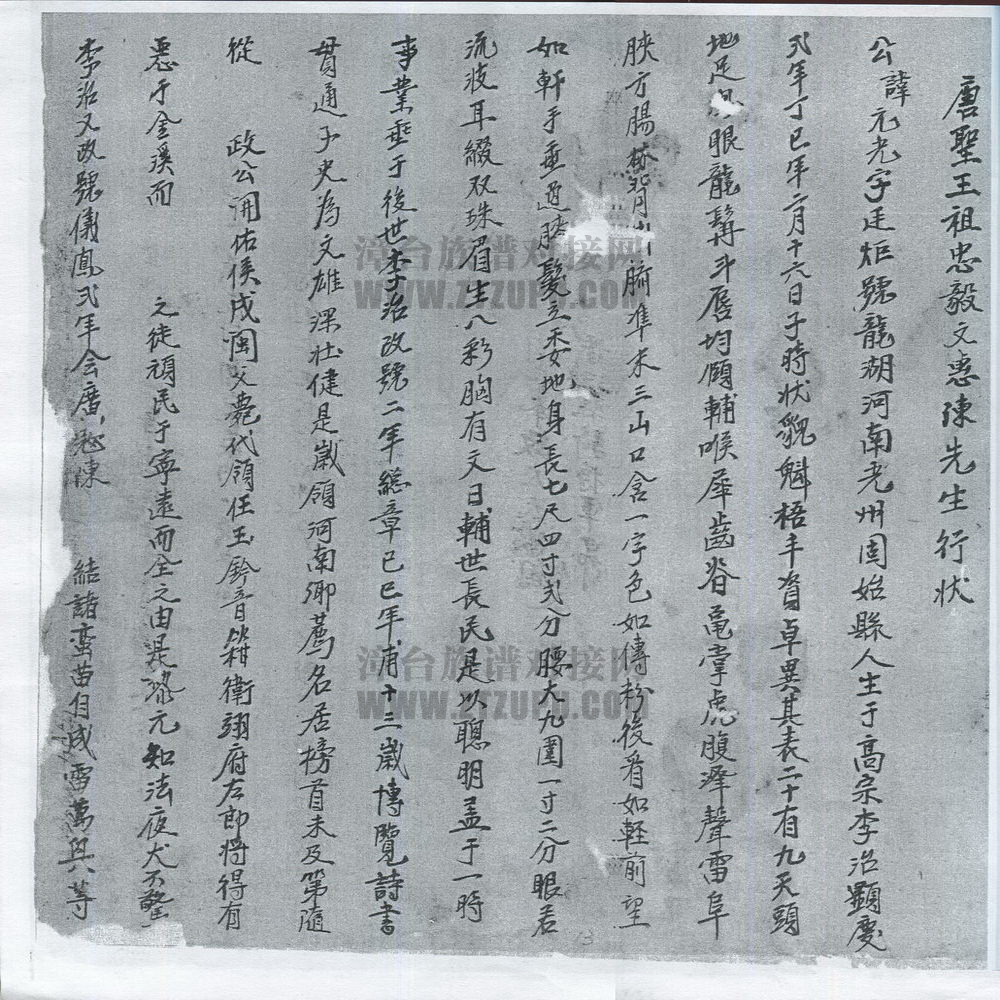 唐聖王祖忠毅文惠陳先生行状
公諱元光字廷炬號龍湖河南光州固始縣人生于高宗李治顯慶
弍年丁巳年二月十六日子時状貌魁梧丰資卓異其表二十有九天頭
地足鳳眼龍髯斗唇均頤輔喉犀齒谷黽掌虎腹澤聲雷阜
腴方腸 脊川臍準米三山口含一字色如傅粉後看如輕前望
如軒手垂過膝髮立委地身長七尺四寸弍分腰大九圍一寸二分眼若
流波耳綴双珠眉生八彩胸有文曰輔世長民是以聰明盖于一時
事業垂于後世李治改號二年總章己巳年甫十三歲博覽詩書
貫通子史為文雄深壮健是歲領河南鄉薦名居榜首未及第隨
從 政公開佑侯戍閩父薨代領任玉鈐音箝衛翊府左郎將得有
惡于金溪而 之徒頑民于寧遠而全之由是 元知法夜犬不驚
李治又改號儀鳳弍年会廣 陳 結諸蛮苗自成雷萬興等
漳台族谱对接网
WWW.ZTZUPU.COM
漳台族谱对接网
WWW.ZTZUPU.COM